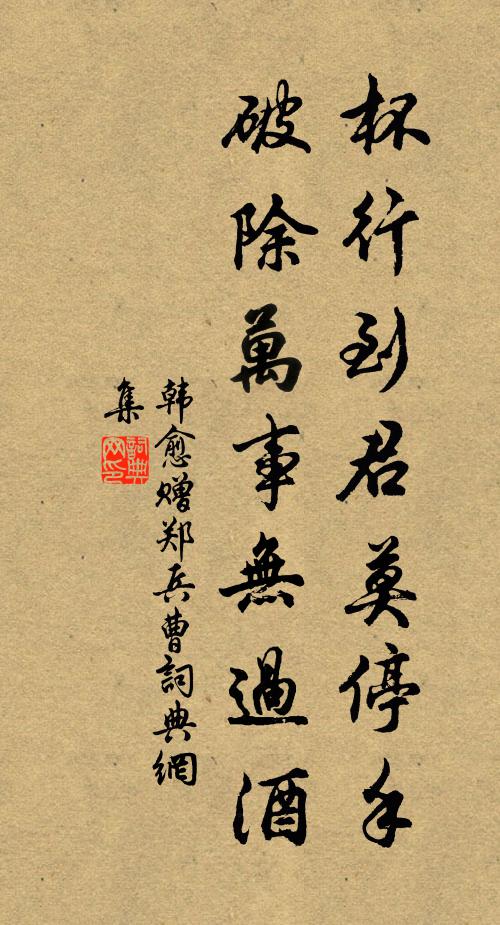 杯行到君莫停手
破除萬事無過酒
韩愈赠郑兵曹詞典網
集
詞典
网印